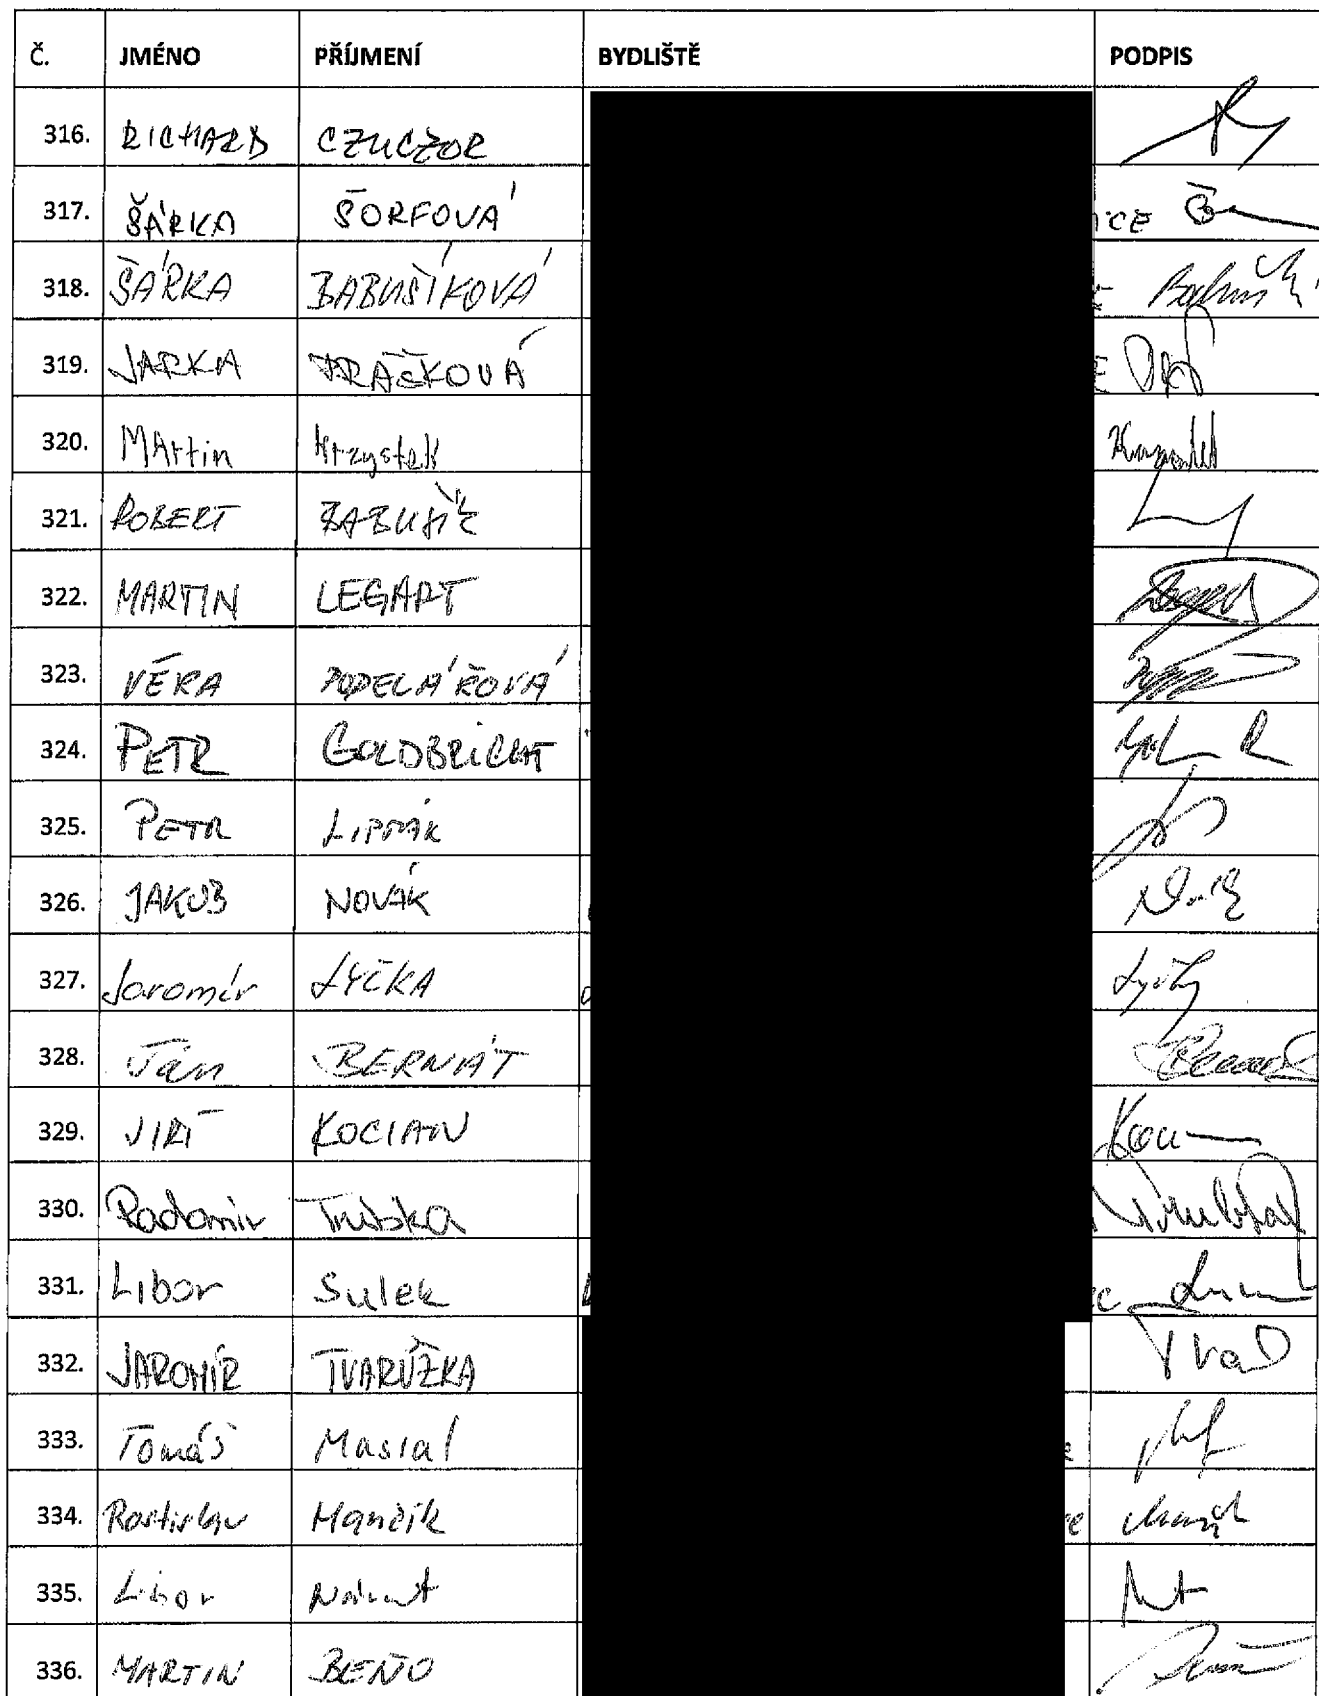 Č. JMÉNO PŘÍJMENÍ BYDLIŠTĚ PODPIS
316. RICHARD CZUCZOR
317. ŠÁRKA ŠORFOVÁ ICE
318. ŠÁRKA BABUŠÍKOVÁ
319. JARKA DRÁČKOVÁ E
320. MArtin Krzystek
321. ROBERT BABUŠÍK
322. MARTIN LEGART
323. VĚRA PODELÁŘOVÁ
324. PETR GOLDBRICHT
325. PETR
326. JAKUB NOVÁK
327. Jaromír LYČKA
328. Ján BERNÁT
329. JIŘÍ KOCIAN
330. Radomír Trubka
331. Libor Sulek
332. JAROMÍR TVARŮŽKA
333. Tomáš Masial
334. Rostislav Mančík
335. Libor
336. MARTIN BEŇO